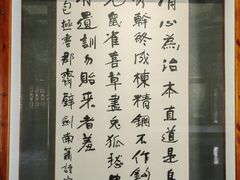 心為治本直道是身
幹終成棟精鋼不作鉤
充鼠雀喜草盡兔狐愁
遺訓勿貽來者羞
包拯書郡齋壁劍南